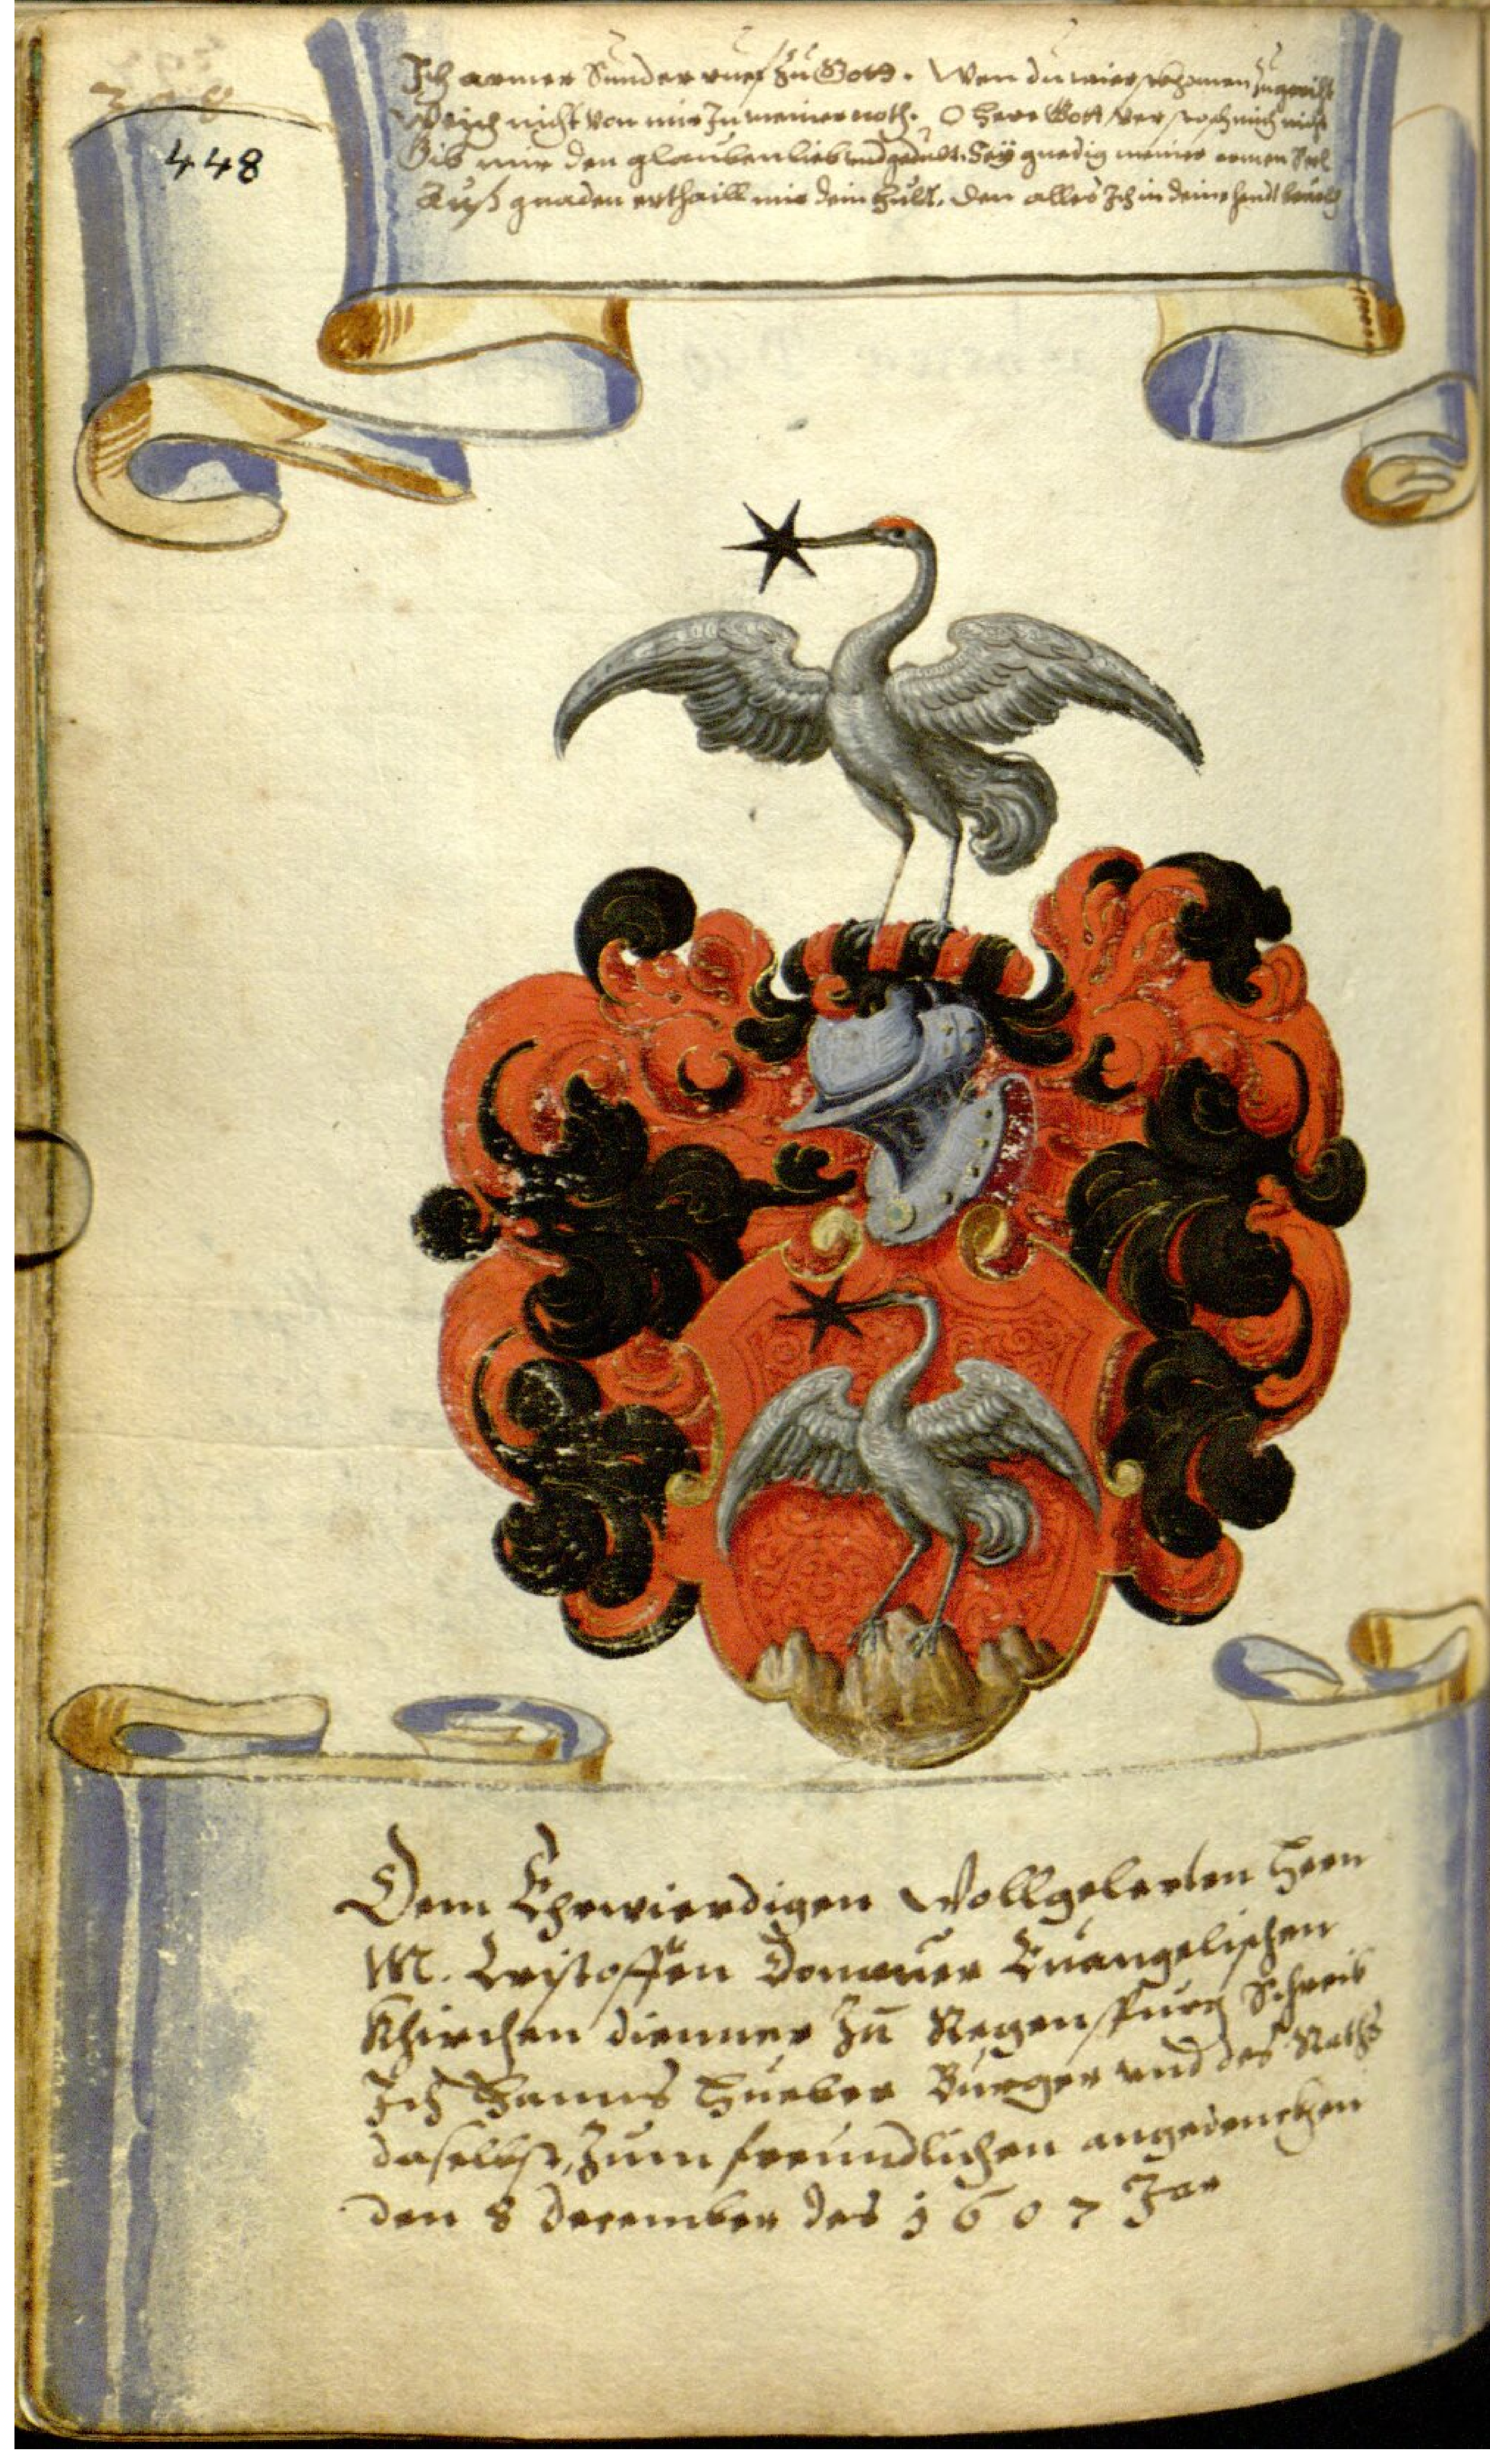 448
Ich armer Sunder rueff Zu Gott. Wen du wierst khomen zu gericht
Weich nicht von mir In meiner noth. O Herr Gott verstoss mich nicht
Gib mir den glauben lieb und gedult. Sey gnedig meiner armen Seel
Auß gnaden erthaill mir dein Huld. Den alles Ich in deine hendt
Dem Ehrwierdigen Wollgelerten Hern
M. Cristoffen Donauer Euangelischen
Khirchen dienner Zu Regenspurg Schreib
Ich Hanns Hueber Burger vnd des Raths
daselbst, Zum freundlichen angedenckhen
den 8 December des 1607 Jar